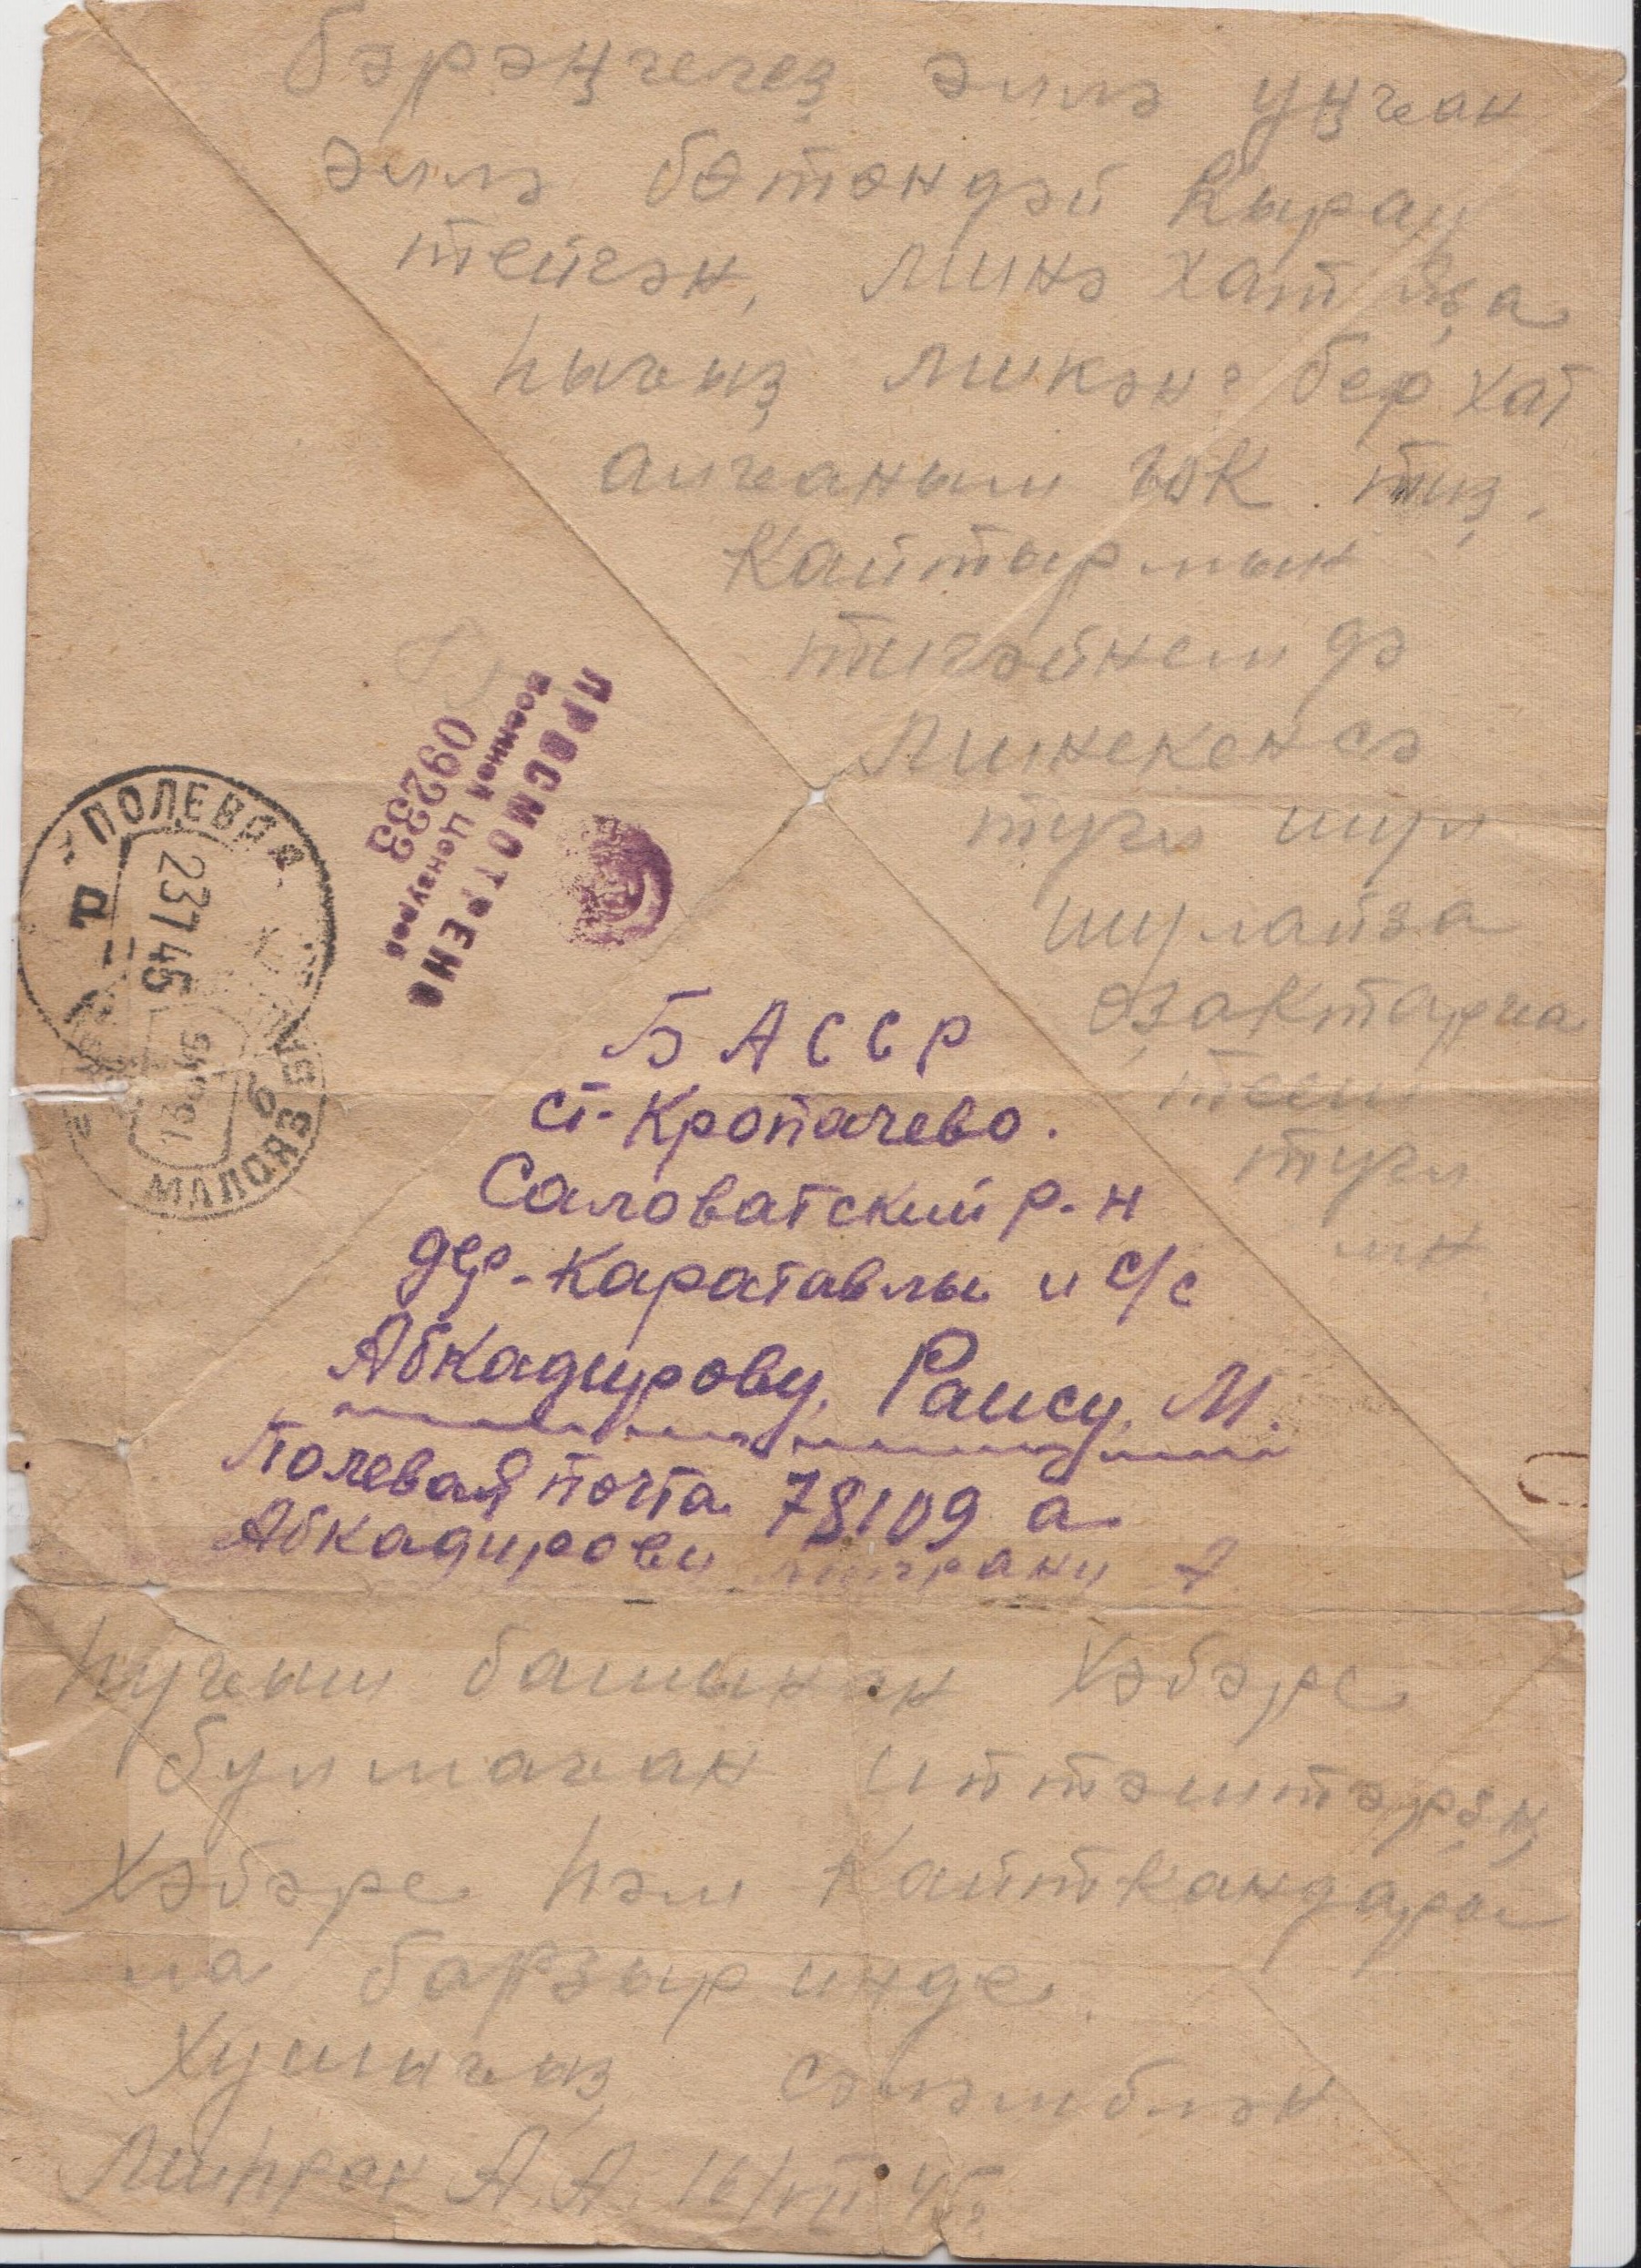 бәрәңгегеҙ әллә уңған
әллә бөтөндәй Кырау
тейгән, минә хат яҙа
һығыҙ микән? бер хат
алғаным юк. тиҙ
Кайтырмын
тигәйнем дә
минекенсә
түгл шул
шулайза
оҙакТарға
теш
түгл
ПРОСМОТРЕНО
Военной Цензурой
09233
ПОЛЕВАЯ
23 7 45
МАЛОЯЗ БАШ
БАССР
ст-Кропачево.
Саловатский р-н
дер-Каратавлы и с/с
Абкадирову, Раису, М.
Полевая почта 78109 а
Абкадирови
һуғыш башынан Хәбәре
булмаған иптәштәрҙең
Хәбәре һәм Кайткандары
ла барзыр инде.
Хушығыҙ сәләмблән
Миһран А. А. 16/VII 45г